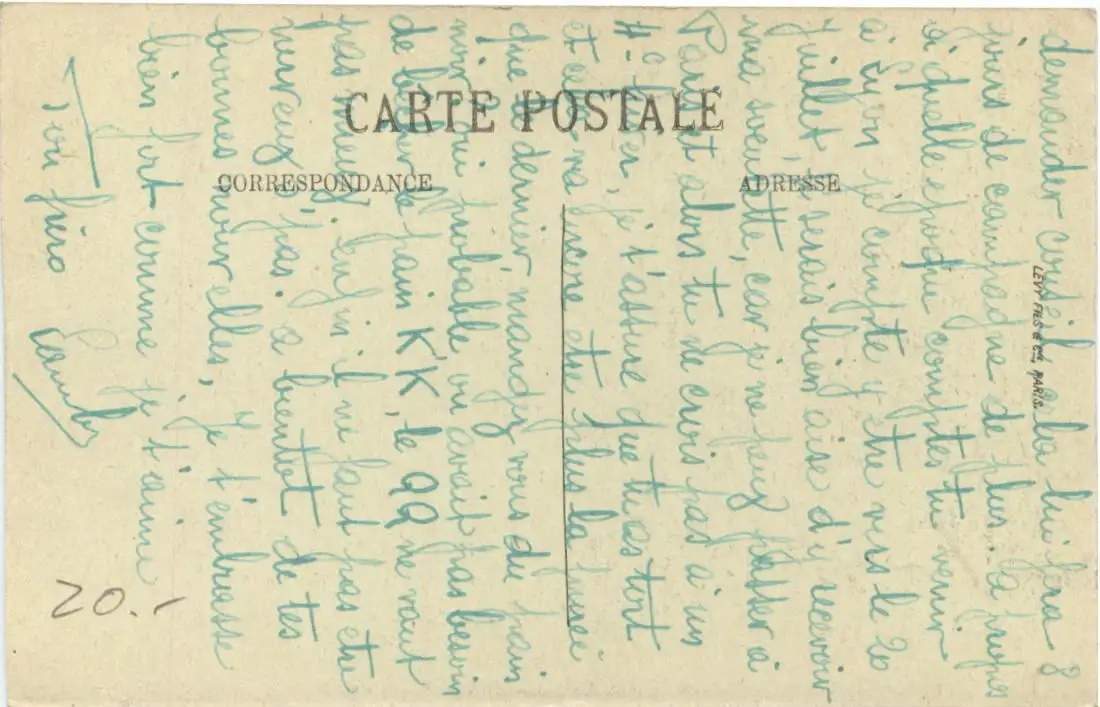 CARTE POSTALE
CORRESPONDANCE
ADRESSE
LEVY FILS & Cie, PARIS.
demander conseil, cela lui fera 8
jours de campagne de plus. à propos
à quelle époque comptes tu venir
à Lyon, je compte y être vers le 20
Juillet, je serais bien aise d'y recevoir
ma soeurette, car je ne peux passer à
Paris et alors tu ne crois pas à un
je t'assure que tu as tort
et ca ira encore etre plus la
que dernier, mangez vous du pain
noir, oui probable on avait pas besoin
de le pain KK, le QQ ne vaut
pas mieux, enfin il ne faut pas etre
nerveux, pas. a bientot de tes
bonnes nouvelles, je t'embrasse
bien fort comme je t'aime
Ton frero
20.-